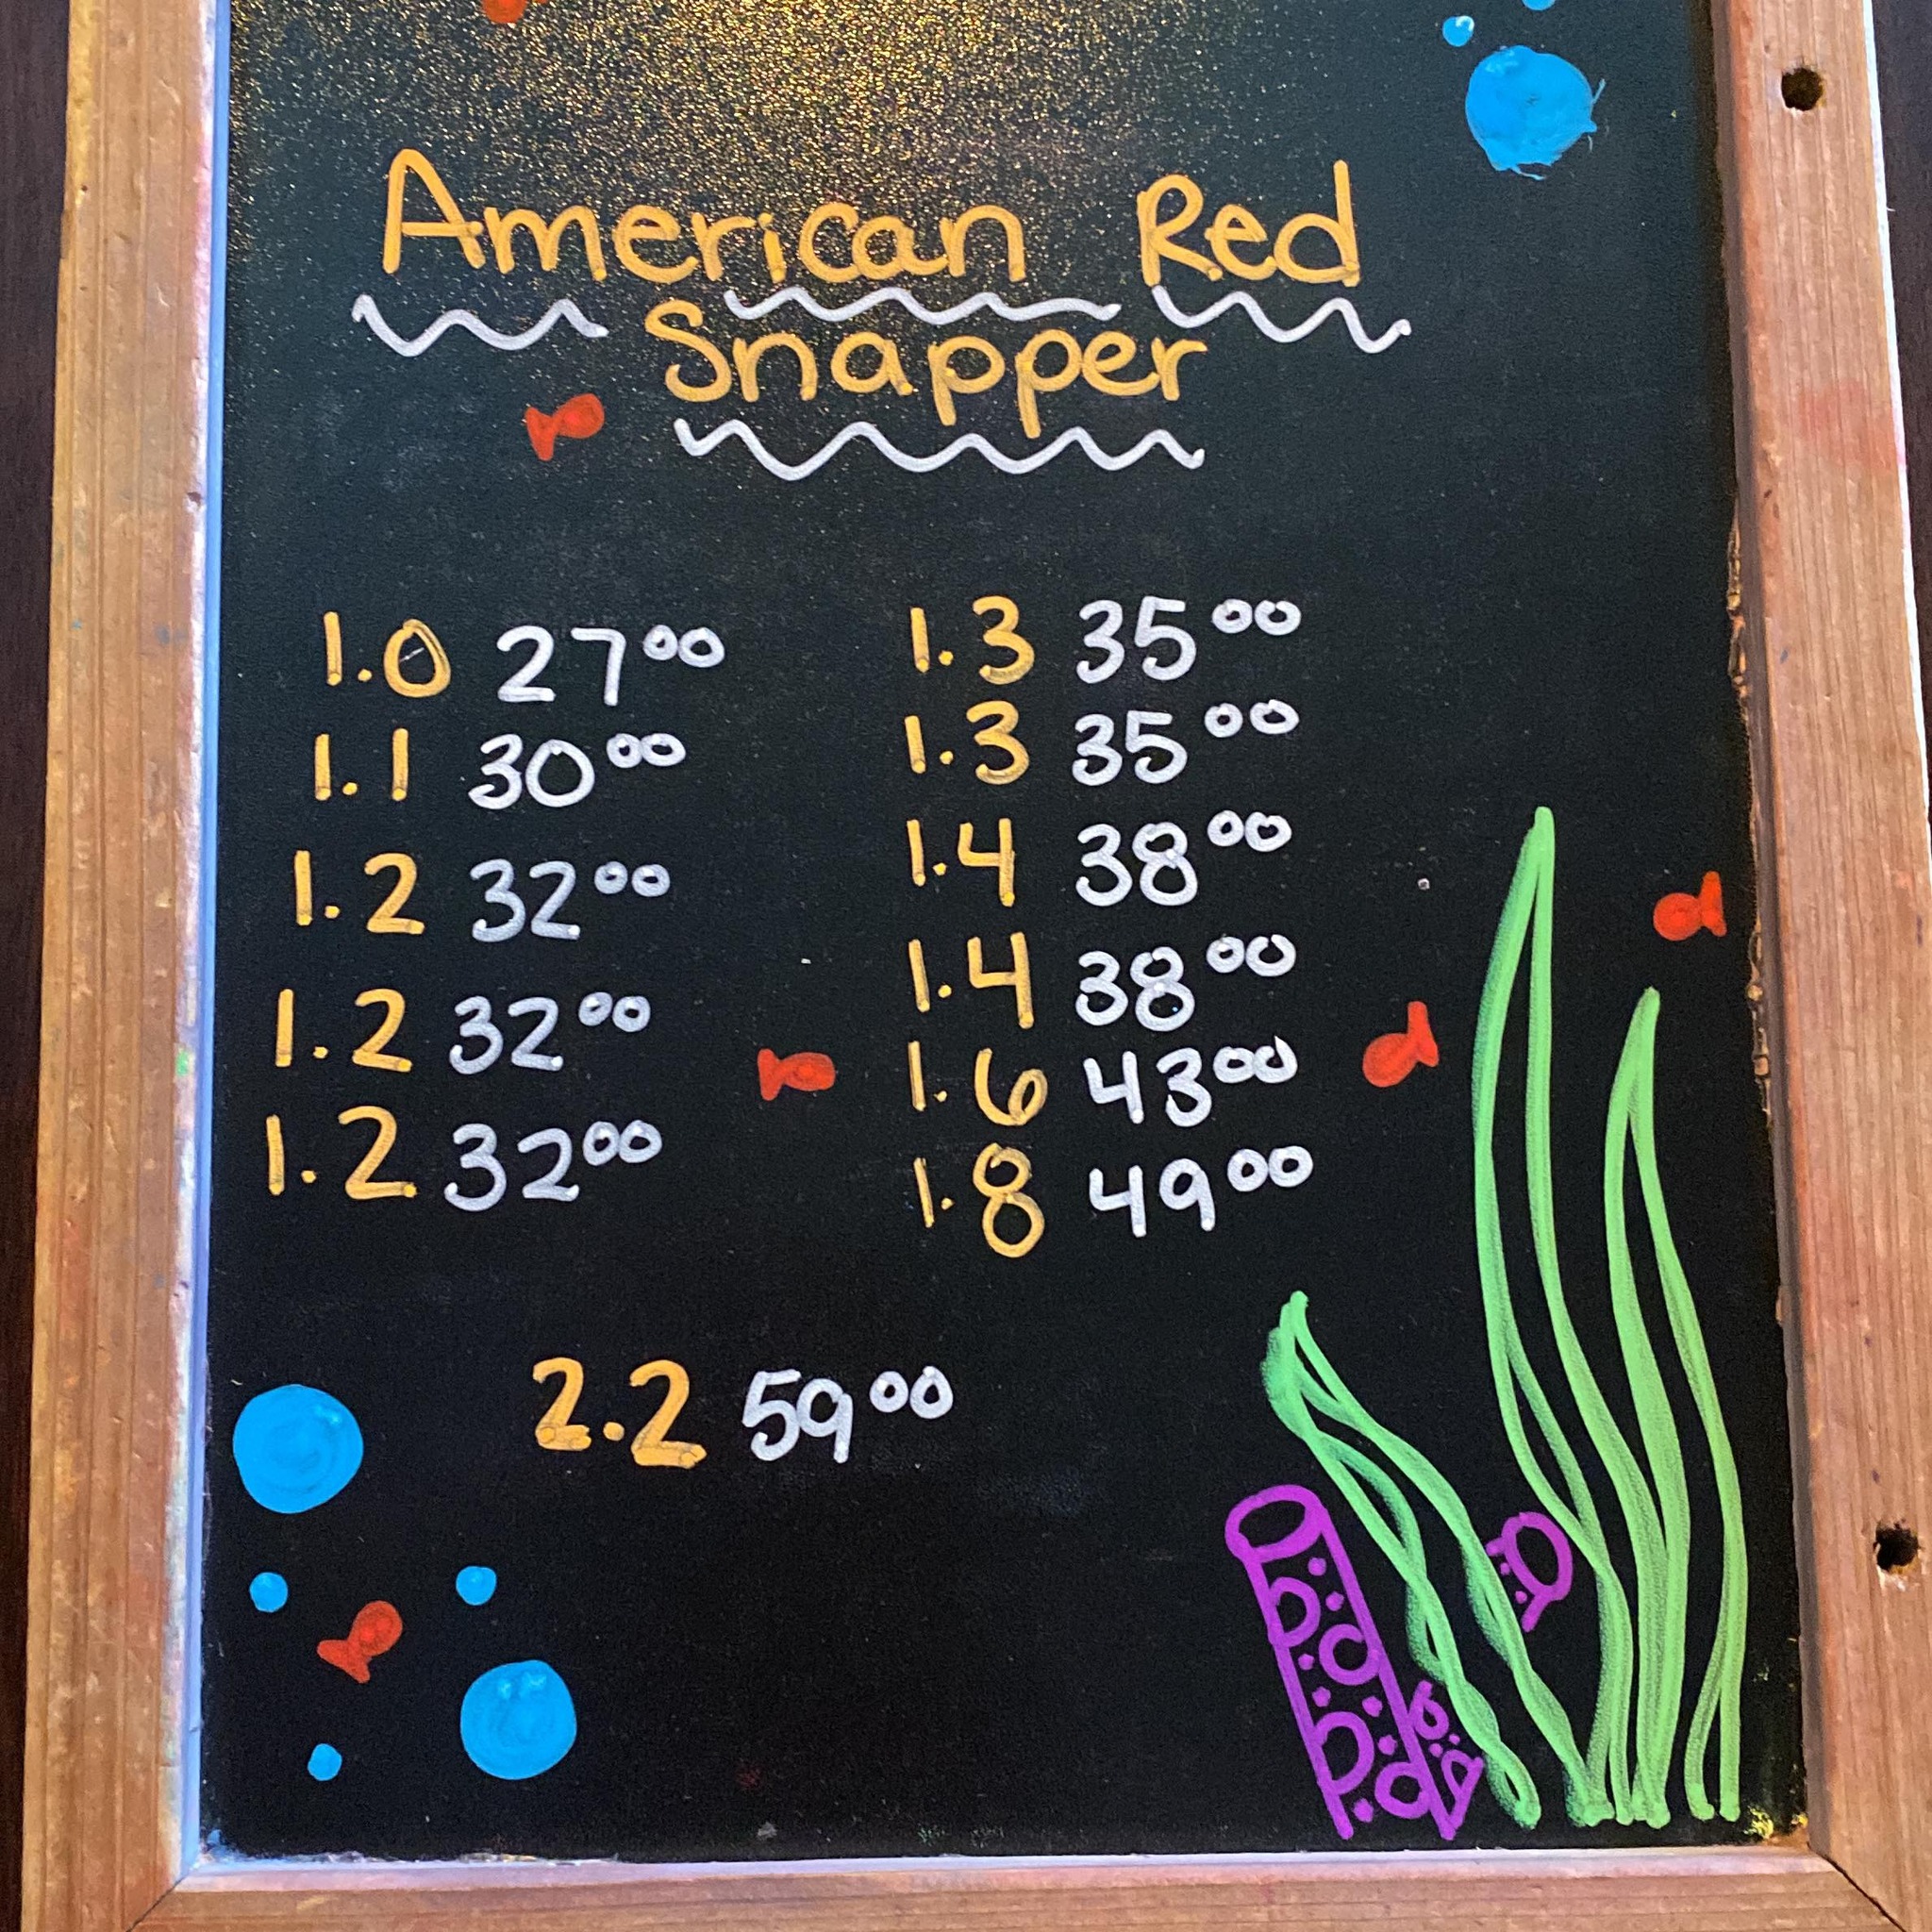 American Red
Snapper
1.0 27⁰⁰
1.1 30⁰⁰
1.2 32⁰⁰
1.2 32⁰⁰
1.2 32⁰⁰
1.3 35⁰⁰
1.3 35⁰⁰
1.4 38⁰⁰
1.4 38⁰⁰
1.6 43⁰⁰
1.8 49⁰⁰
2.2 59⁰⁰